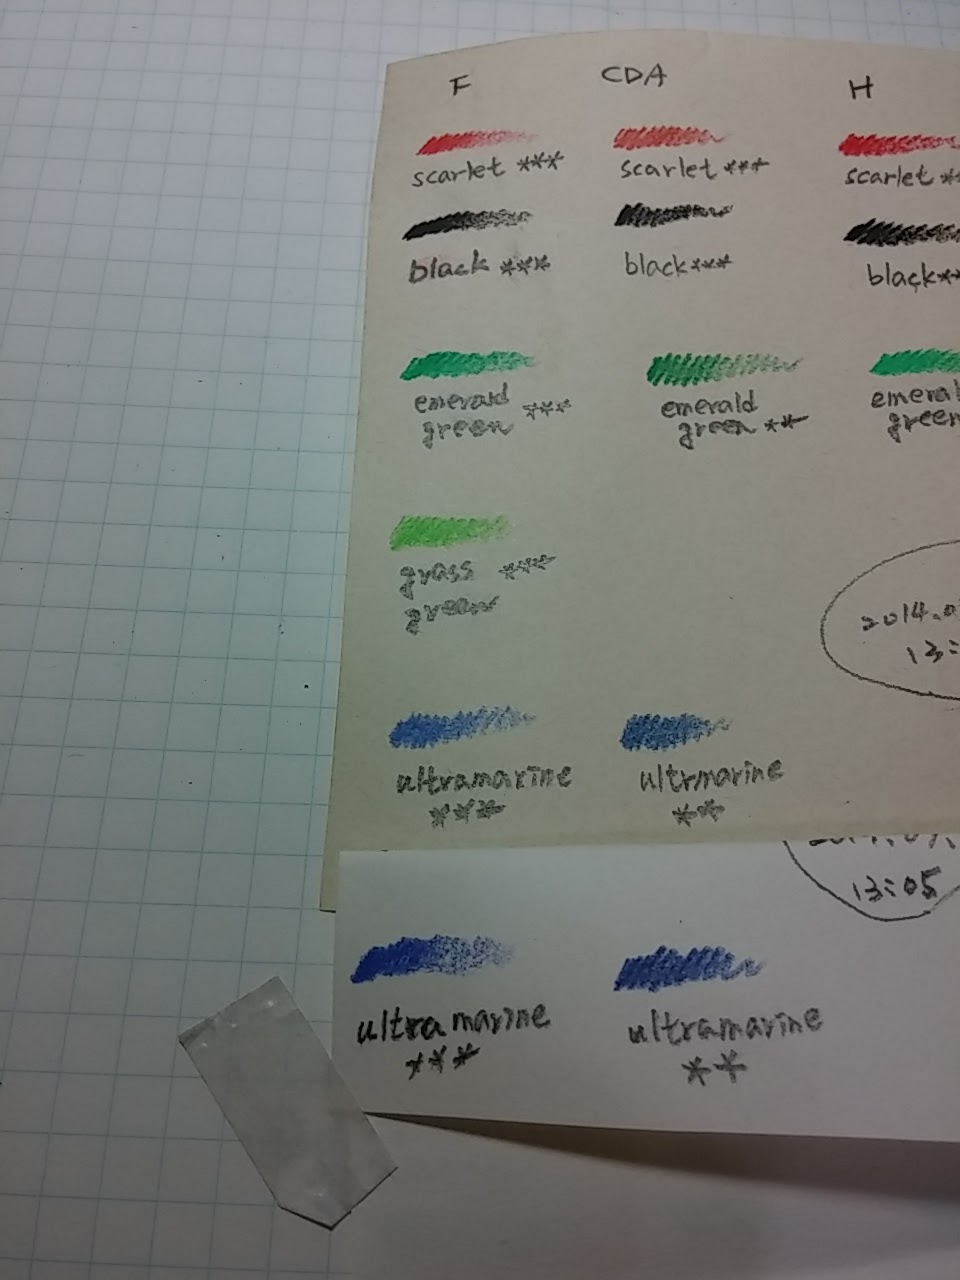 F CDA H
scarlet *** scarlet *** scarlet **
black *** black*** black**
emerald
green *** emerald
green ** emeral
green
grass ***
green
2014.0
13:
ultramarine
*** ultrmarine
**
13:05
ultramarine
*** ultramarine
**